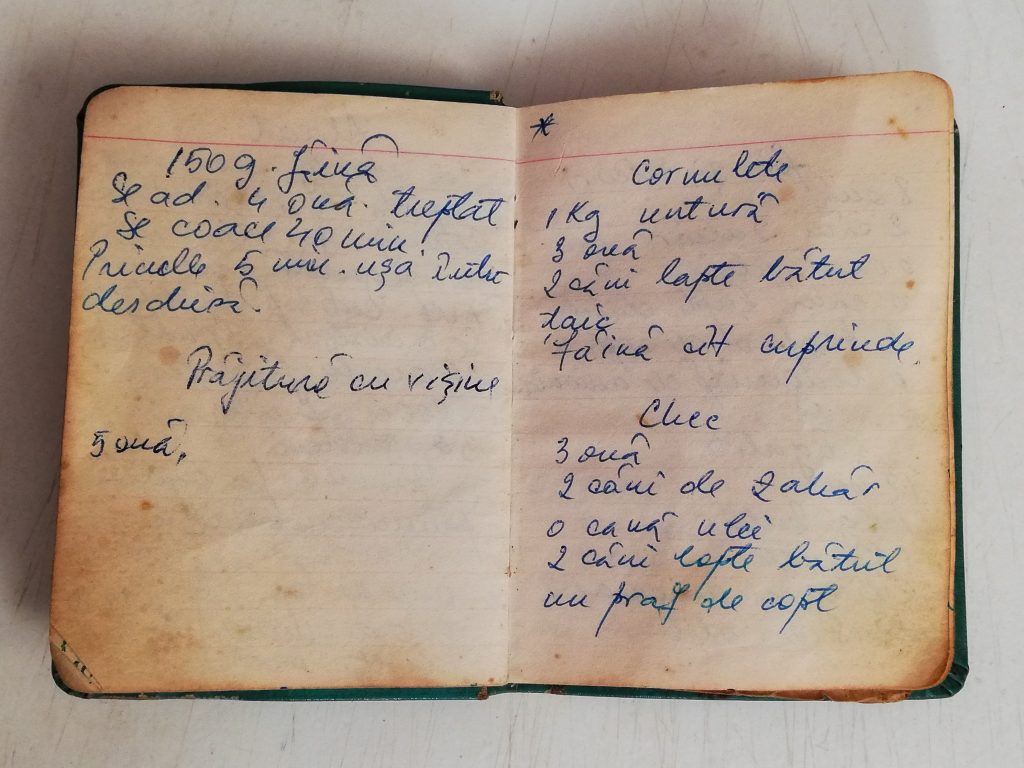 150 g. făină
Se ad. 4 ouă. treptat,
Se coace 40 min
Primele 5 min. ușa între
deschisă.
Prăjitură cu vișine
5 ouă,
*
Cornulete
1 Kg untură
3 ouă
2 căni lapte bătut
făină cît cuprinde.
Chec
3 ouă
2 căni de zahăr
o cană ulei
2 căni lapte bătut
un praf de copt